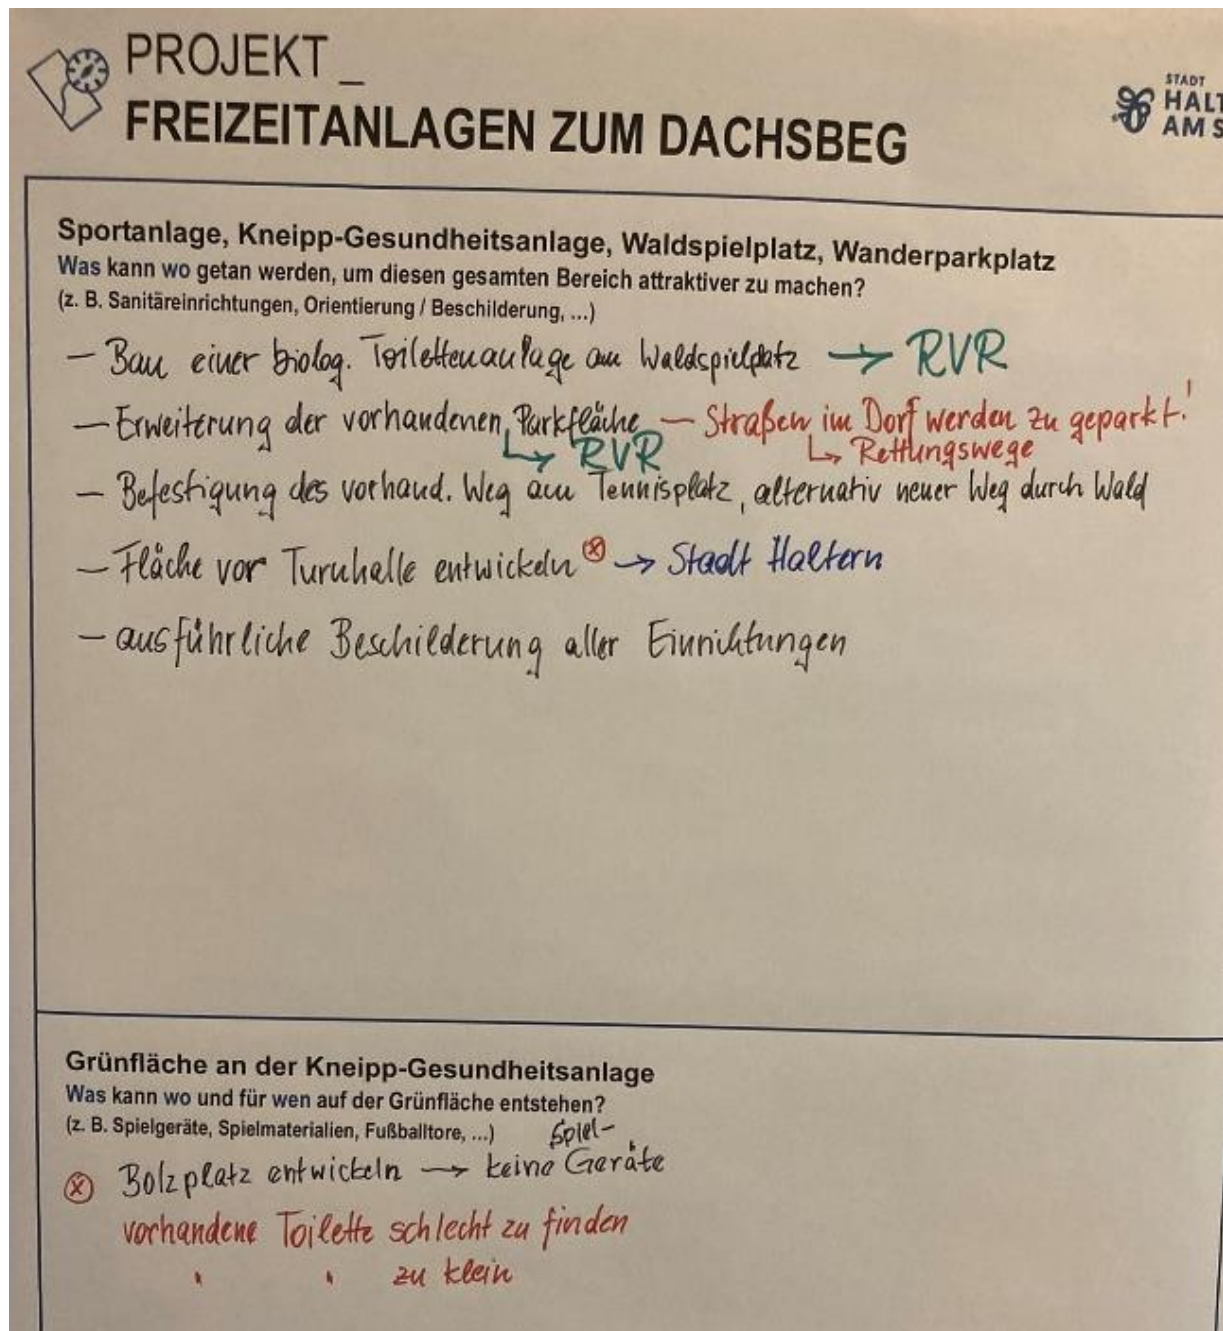 PROJEKT _
FREIZEITANLAGEN ZUM DACHSBEG
STADT
HALT
AM S
Sportanlage, Kneipp-Gesundheitsanlage, Waldspielplatz, Wanderparkplatz
Was kann wo getan werden, um diesen gesamten Bereich attraktiver zu machen?
(z. B. Sanitäreinrichtungen, Orientierung / Beschilderung, ...)
– Bau einer biolog. Toilettenanlage am Waldspielplatz → RVR
– Erweiterung der vorhandenen Parkfläche – Straßen im Dorf werden zu geparkt!
↳ RVR ↳ Rettungswege
– Befestigung des vorhand. Weg am Tennisplatz, alternativ neuer Weg durch Wald
– Fläche vor Turnhalle entwickeln ⓧ → Stadt Haltern
– ausführliche Beschilderung aller Einrichtungen
Grünfläche an der Kneipp-Gesundheitsanlage
Was kann wo und für wen auf der Grünfläche entstehen?
(z. B. Spielgeräte, Spielmaterialien, Fußballtore, ...)
Spiel-
ⓧ Bolzplatz entwickeln → keine Geräte
vorhandene Toilette schlecht zu finden
" " zu klein